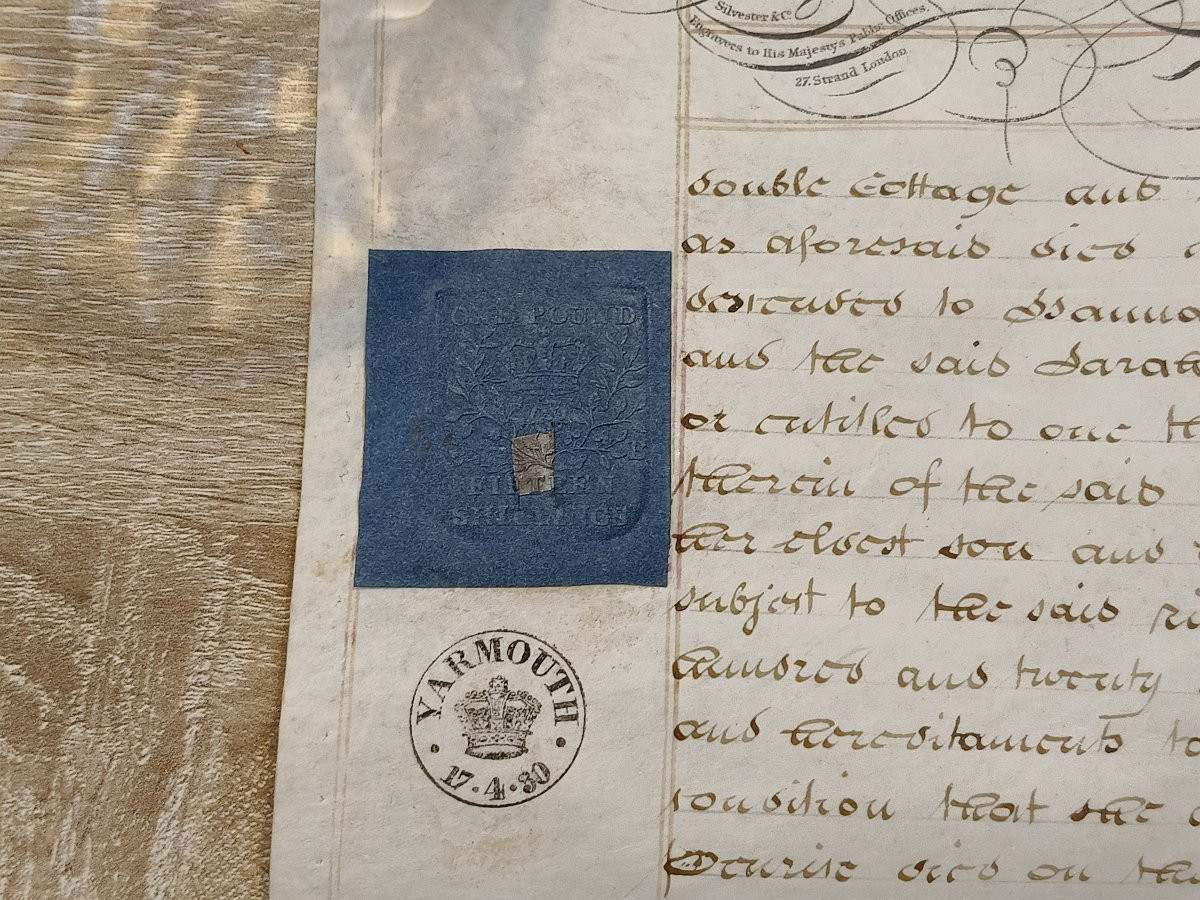 Silvester & Co.
Engravers to His Majesty's Public Offices,
27, Strand London
double Cottage and
as aforesaid died
ONE POUND
FIFTEEN
SHILLINGS
to
and the said Sarah
or entitled to one
therein of the said
her eldest son and
subject to the said
hundred and twenty
and hereditaments to
condition that she
died on the
YARMOUTH
17·4·30